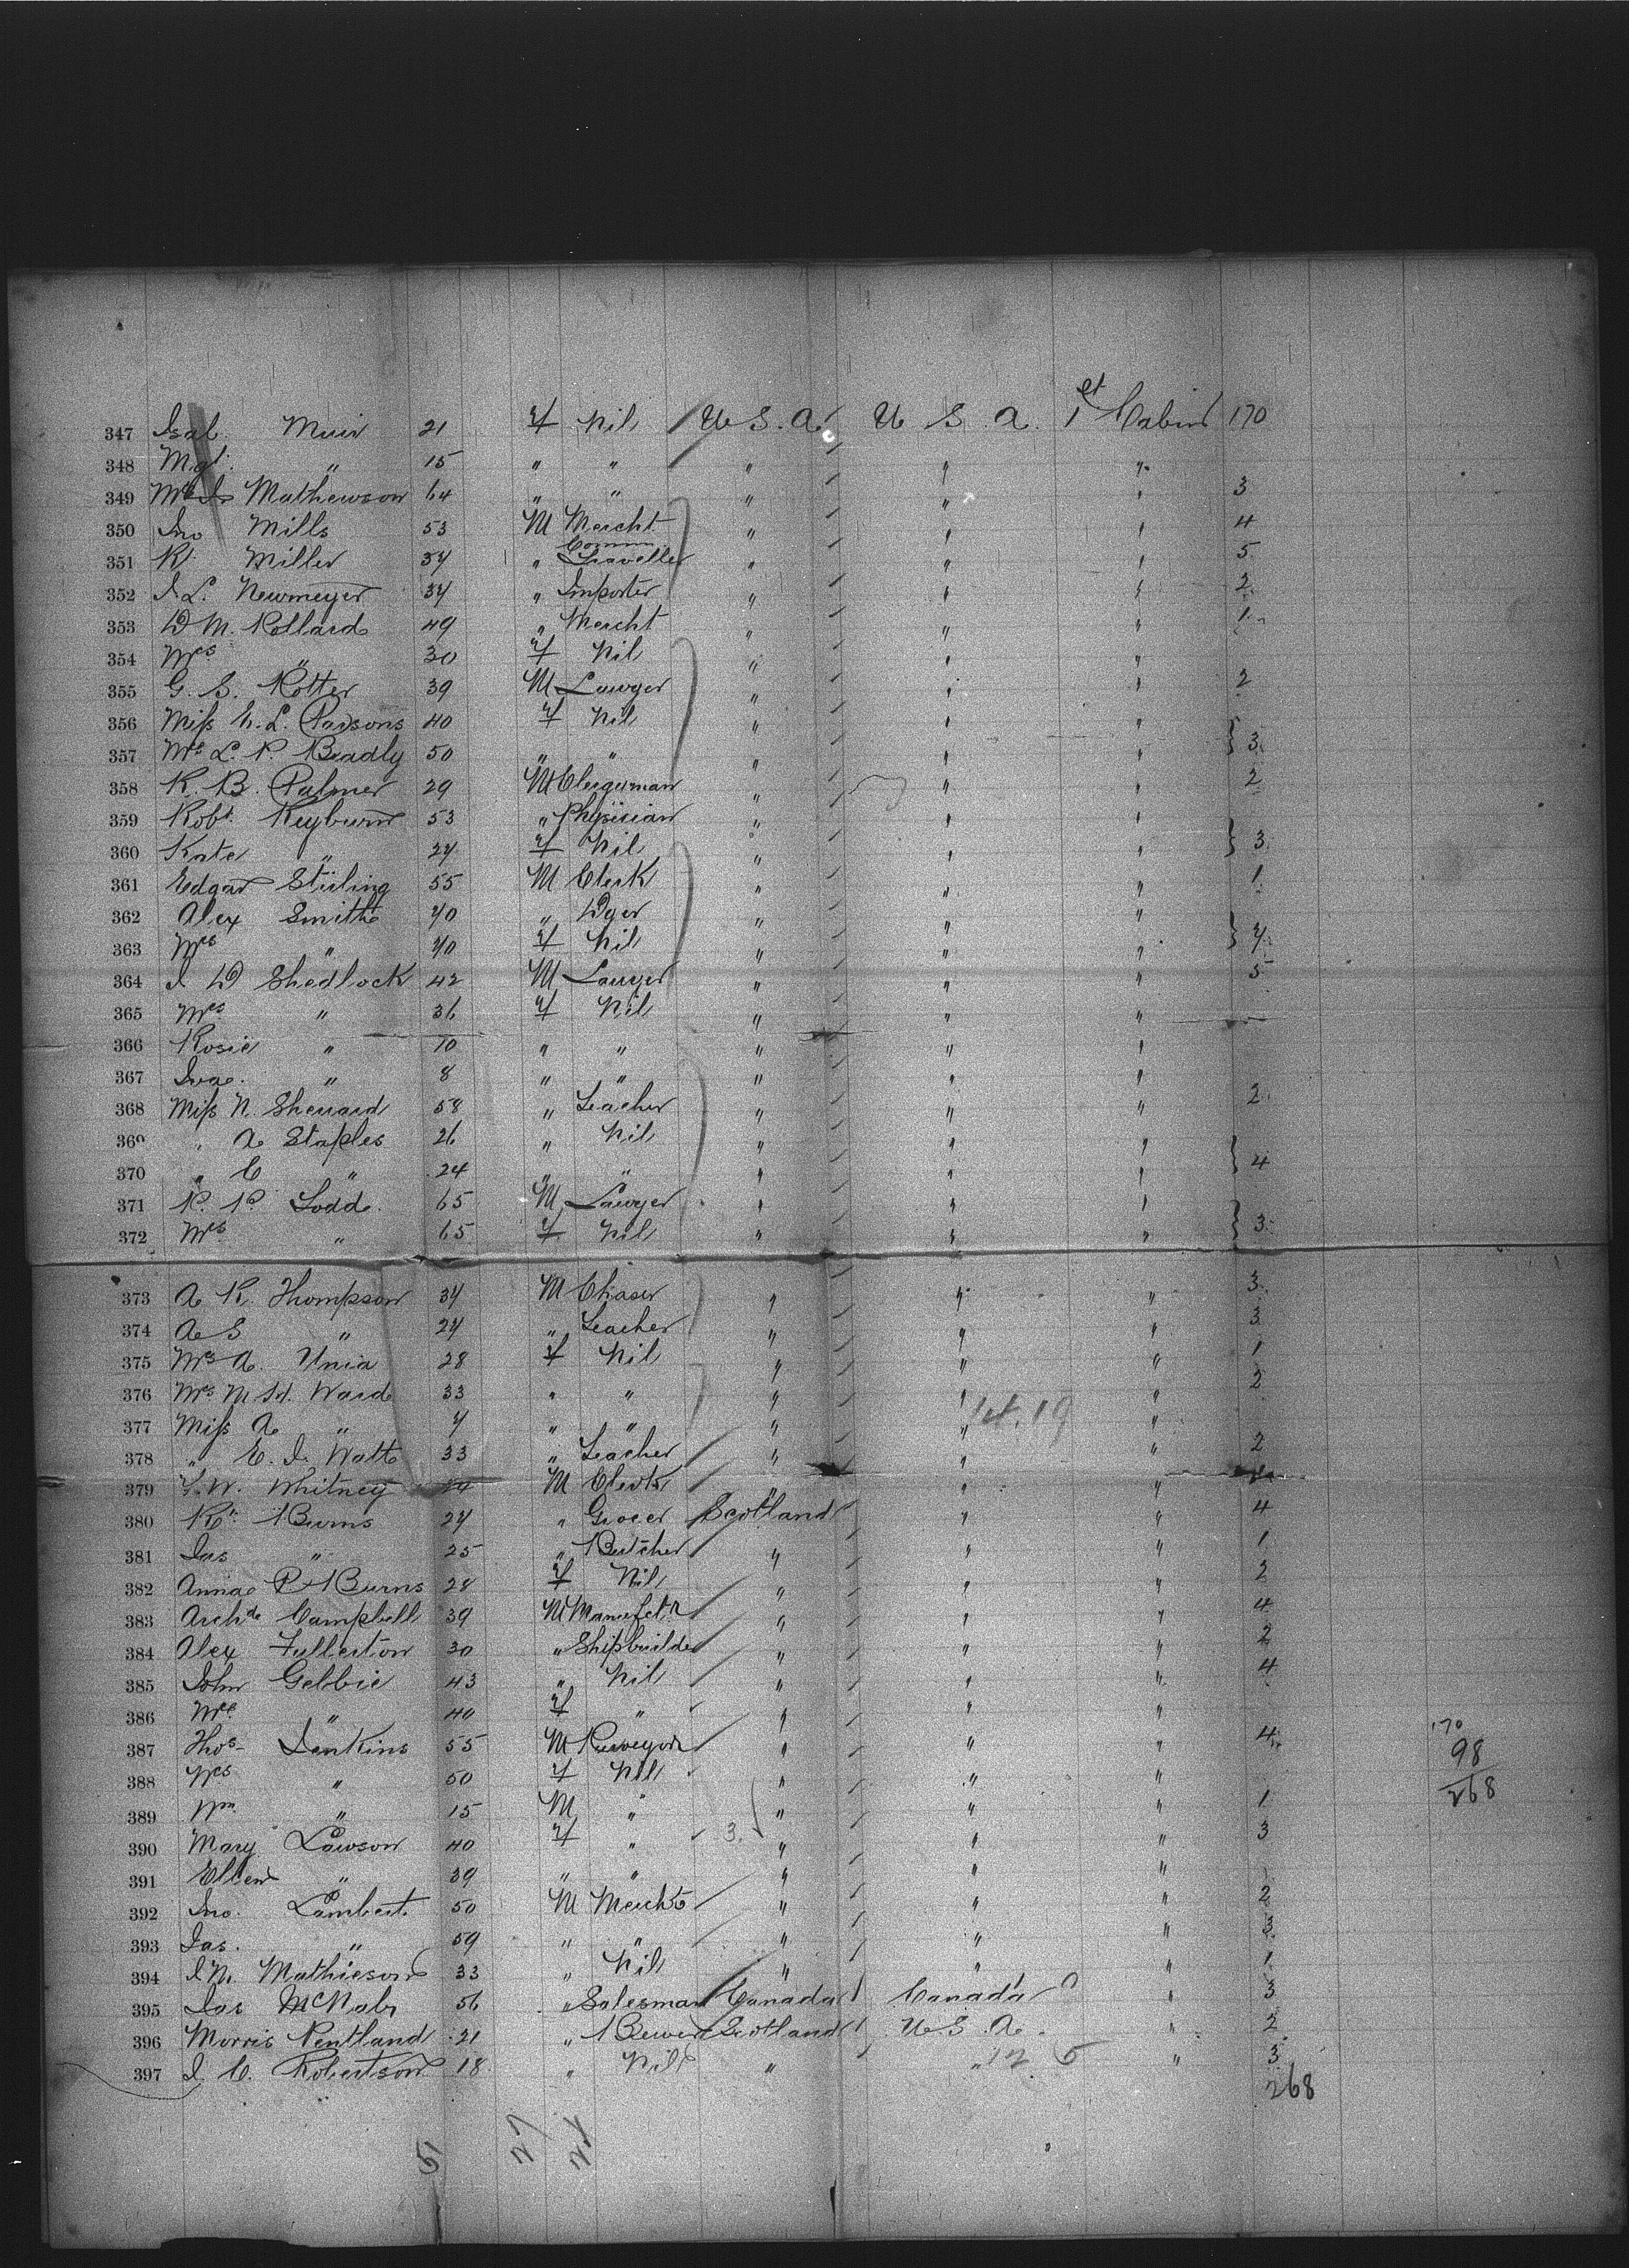 347 Isab. Muir 21 f Nil U S. A. U S. A. 1st Cabin 170
348 Mgt. " 15 " " " " "
349 Mrs Mathewson 64 " " " " " 3
350 Jno Mills 53 M Mercht " " " 4
351 Rt Miller 34 " Comm. Traveller " " " 5
352 J L. Newmeyer 34 " Importer " " " 2
353 D M. Pollard 49 " Mercht " " " 1
354 Mrs " 30 f Nil " " "
355 G. S. Potter 39 M Lawyer " " " 2
356 Miss L. Parsons 40 f Nil " " "
357 Mrs L. P. Bradly 50 " " " " " } 3
358 R. B. Palmer 29 M Clergyman " " " 2
359 Robt. Reyburn 53 " Physician " " "
360 Kate " 24 f Nil " " " } 3
361 Edgar Stirling 55 M Clerk " " " 1
362 Alex Smith 40 " Dyer " " "
363 Mrs " 40 f Nil " " " } 4
364 J D Shedlock 42 M Lawyer " " " 5
365 Mrs " 36 f Nil " " "
366 Rosie " 10 " " " " "
367 Iva. " 8 " " " " "
368 Miss N. Sherrard 58 " Teacher " " " 2
369 " A Staples 26 " Nil " " "
370 " C " 24 " " " " " } 4
371 R. P. Todd. 65 M Lawyer " " "
372 Mrs " 65 f Nil " " " } 3
373 A R. Thompson 34 M Chaser " " " 3
374 A S " 24 " Teacher " " " 3
375 Mrs A. Unia 28 f Nil " " " 1
376 Mrs M. Ward 33 " " " " " 2
377 Miss A " 4 " " " " "
378 " E. J. Watt 33 " Teacher " " " 2
379 F. W. Whitney 24 M Clerk " " "
380 Rt. Burns 24 " Grocer Scotland " " 4
381 Jas " 25 " Butcher " " " 1
382 Anna P Burns 28 f Nil " " " 2
383 Archd Campbell 39 M Manufctr " " " 4
384 Alex Fullerton 30 " Shipbuilder " " " 2
385 John Gebbie 43 " Nil " " " 4
386 Mrs " 40 f " " " "
387 Thos Jenkins 55 M Purveyor " " " 4 170
388 Mrs " 50 f Nil " " " 98
389 Wm " 15 M " " " " 1 268
390 Mary Lawson 40 f " 3. " " " 3
391 Ellen " 39 " " " " "
392 Jno. Lambert 50 M Merchts " " " 2
393 Jas. " 59 " " " " " 3
394 J N. Mathieson 33 " Nil " " " 1
395 Jas McNab 56 " Salesman Canada Canada " 3
396 Morris Pentland 21 " Brewer Scotland U. S. A. " 2
397 J. C. Robertson 18 " Nil " " 12 5 " 3
268